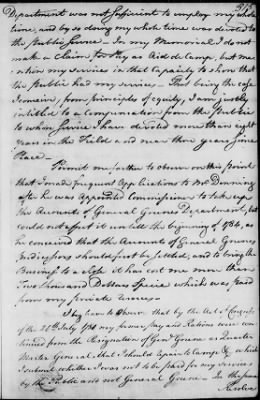 Department was not sufficient to employ my whole
time, and by so doing my whole time was devoted to
the Public Service - In my Memorial I do not
make a Claim for Pay as Aid de Camp, but me-
-ntion my services in that Capacity to shew that
the Public had my services - That being the case
I conceive, from principles of equity, I am justly
intitled to a compensation from the Public
to whose service I have devoted more than eight
years in the Field and near three years since
Peace -
Permit me further to observe on this point
that I made frequent Applications to Mr Denning
after he was appointed Commissioner to take up
the Accounts of General Greenes Department, but
could not effect it untill the beginning of 1784, as
he conceived that the Accounts of General Greenes
Predecessors should first be settled, and to bring the
Business to a close it has cost me more than
Two thousand Dollars Specie which was paid
from my private
I beg leave to observe that by the Act of Congress
of the 26th July 1780 my former pay and Rations were con-
tinued from the Resignation of Genl Greene as Quarter
Master General, that I should repair to Camp &c which
I submit whether I was not to be paid for my services
by the Public and not General Greene - In the same
Resolve